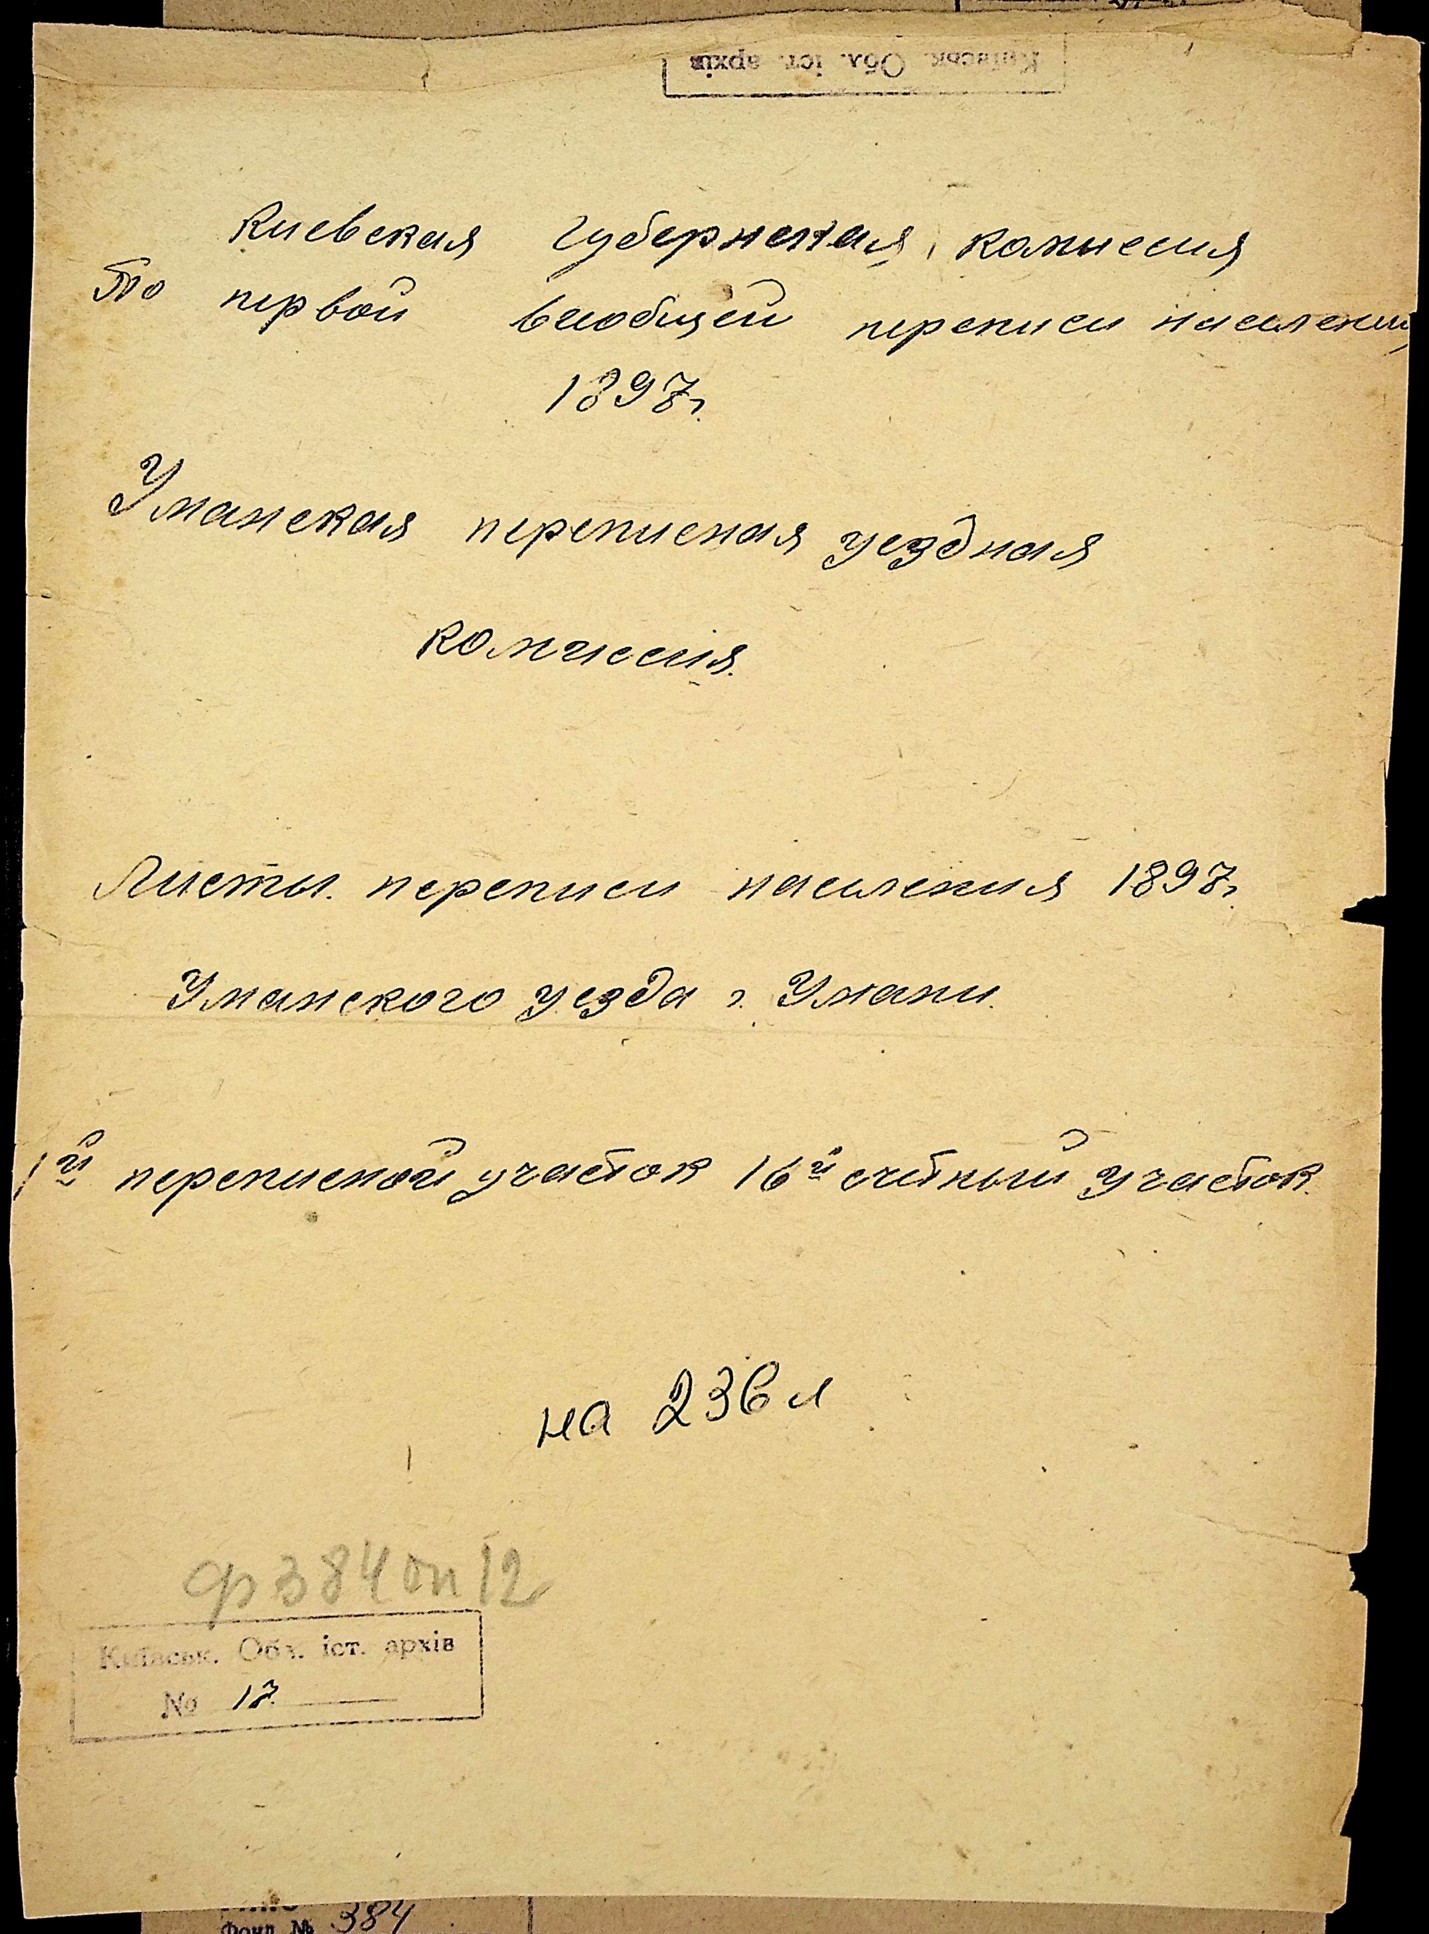 Київськ. Обл. іст. архів
Киевская Губернская комиссия
По первой всеобщей переписи населения
1897г.
Уманская переписная уездная
комиссия.
Листы переписи населения 1897г.
Уманского уезда г. Умани.
1й переписной участок 16й счётный участок.
на 236 л
ф 384 оп 12
Київськ. Обл. іст. архів
№ 17
Фонд № 384